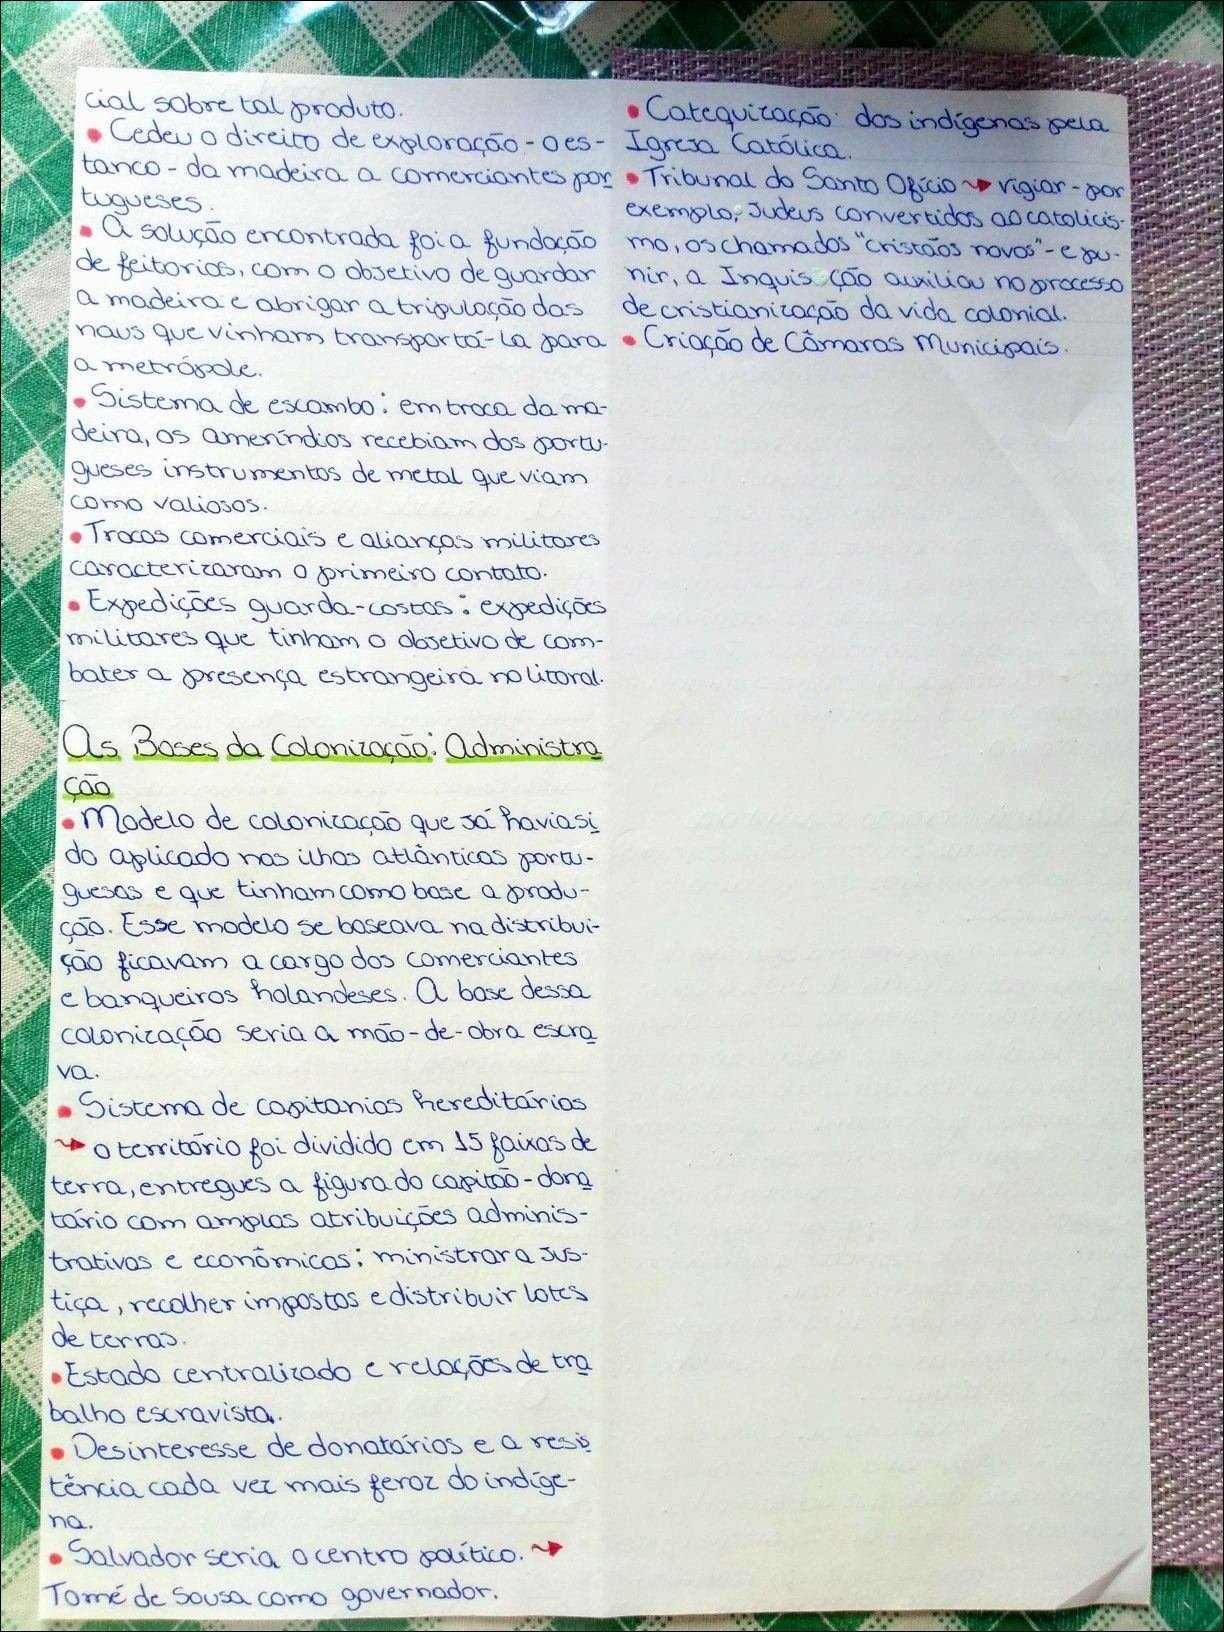 cial sobre tal produto.
• Cedeu o direito de exploração - o es-
tanco - da madeira a comerciantes por
tugueses.
• A solução encontrada foi a fundação
de feitorias, com o objetivo de guardar
a madeira e abrigar a tripulação das
naus que vinham transportá-la para
a metrópole.
• Sistema de escambo: em troca da ma-
deira, os ameríndios recebiam dos portu-
gueses instrumentos de metal que viam
como valiosos.
• Trocas comerciais e alianças militares
caracterizaram o primeiro contato.
• Expedições guarda-costas: expedições
militares que tinham o objetivo de com-
bater a presença estrangeira no litoral.
As Bases da Colonização: Administra
ção
• Modelo de colonização que já havia si
do aplicado nas ilhas atlânticas portu-
guesas e que tinham como base a produ-
ção. Esse modelo se baseava na distribui-
ção ficavam a cargo dos comerciantes
e banqueiros holandeses. A base dessa
colonização seria a mão-de-obra escra
va.
• Sistema de capitanias hereditárias
→ o território foi dividido em 15 faixas de
terra, entregues a figura do capitão-dona
tário com amplas atribuições adminis-
trativas e econômicas: ministrar a jus-
tiça, recolher impostos e distribuir lotes
de terras.
• Estado centralizado e relações de tra
balho escravista.
• Desinteresse de donatários e a resis
tência cada vez mais feroz do indíge-
na.
• Salvador seria o centro político. →
Tomé de Sousa como governador.
• Catequização dos indígenas pela
Igreja Católica.
• Tribunal do Santo Ofício → vigiar - por
exemplo, judeus convertidos ao catolicis-
mo, os chamados "cristãos novos" - e pu-
nir, a Inquisição auxiliou no processo
de cristianização da vida colonial.
• Criação de Câmaras Municipais.